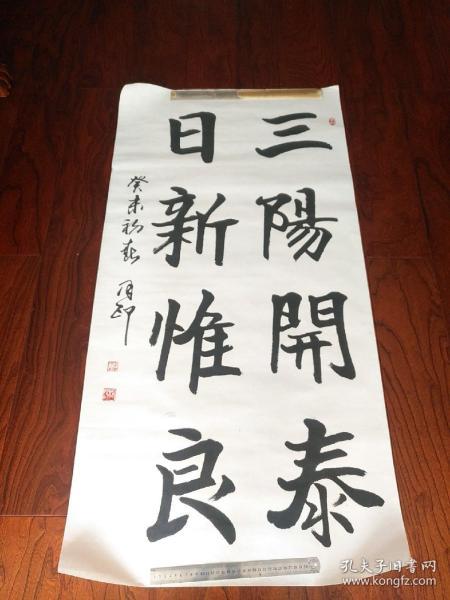 三陽開泰
日新惟良
癸未初春
孔夫子旧书网
www.kongfz.com